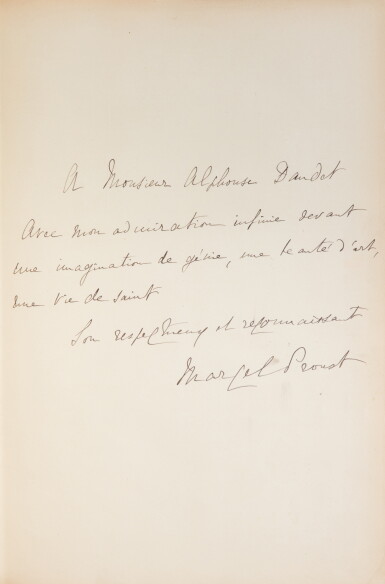 A Monsieur Alphonse Daudet
Avec mon admiration infinie devant
une imagination de génie, une beauté d'art,
une vie de saint
Son respectueux et reconnaissant
Marcel Proust